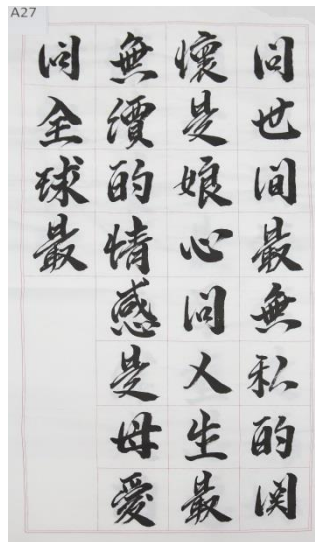 A27
問世间最無私的関
懷是娘心問人生最
無價的情感是母愛
问全球最